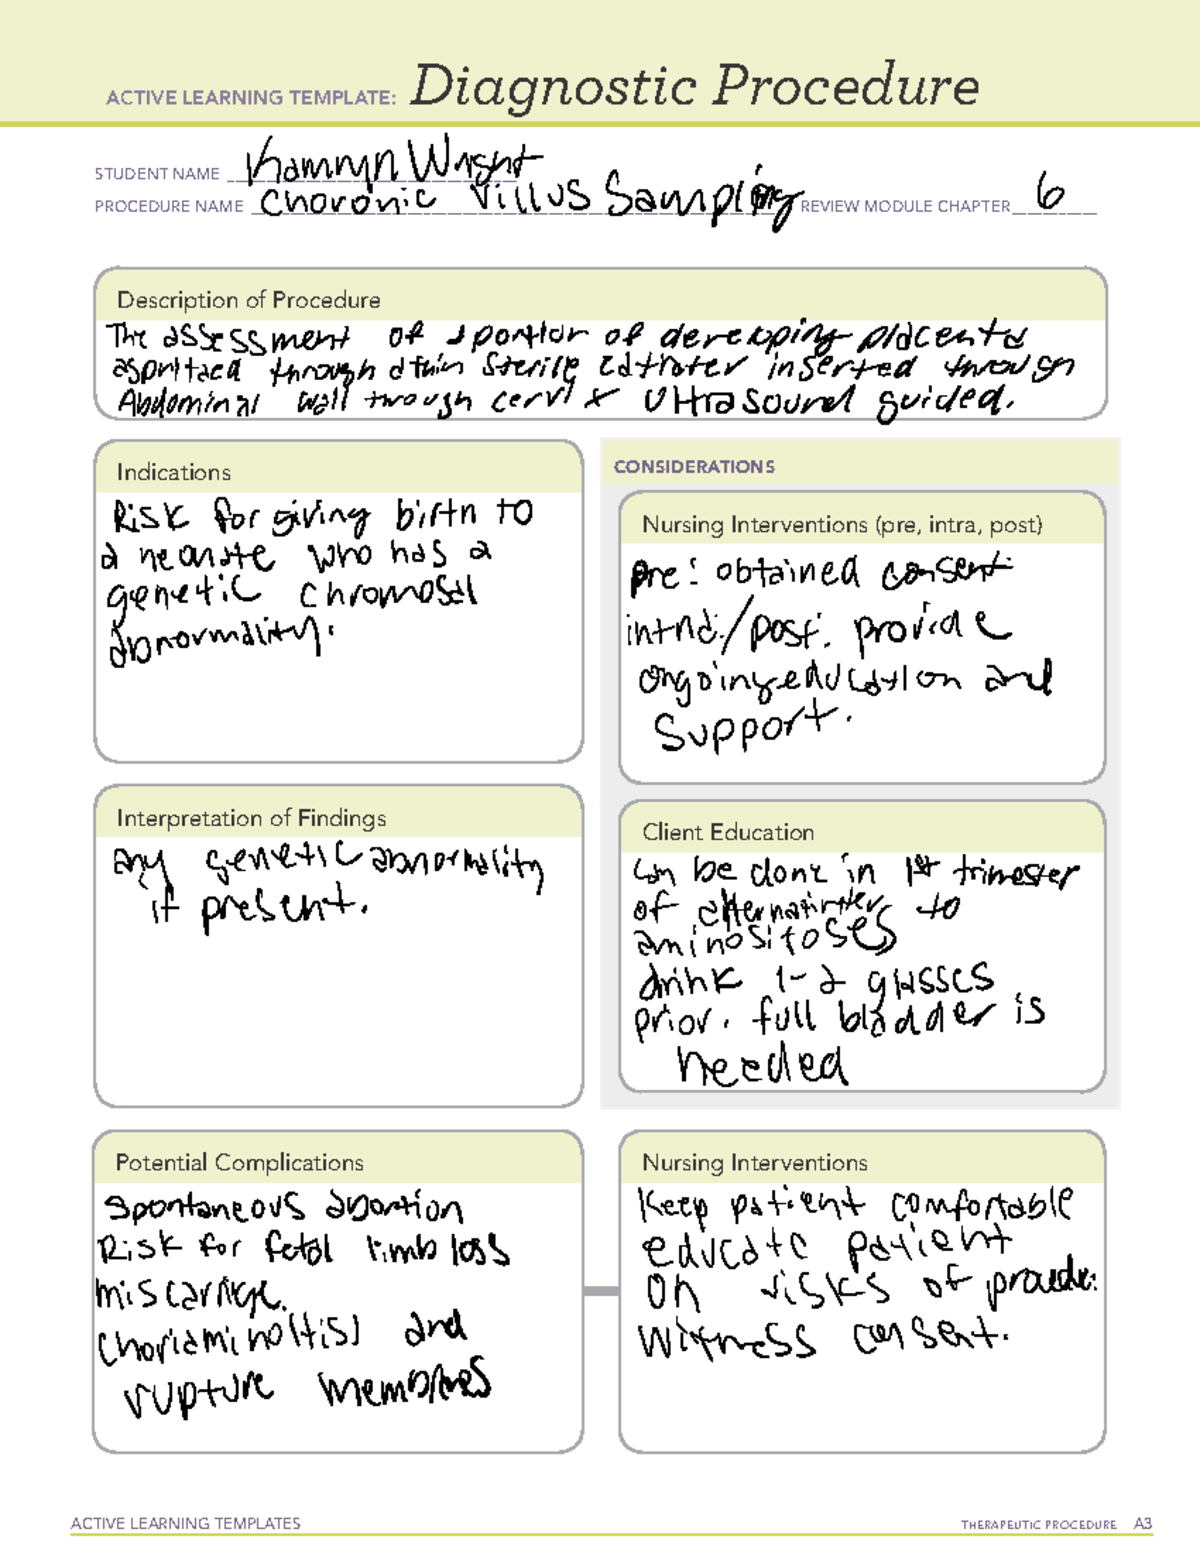 ACTIVE LEARNING TEMPLATE: Diagnostic Procedure
STUDENT NAME Kamryn Wright
PROCEDURE NAME Choronic Villus Sampling REVIEW MODULE CHAPTER 6
Description of Procedure
The assessment of a portion of developing placenta
through a thin sterile catheter inserted through
Abdominal wall through cervix Ultrasound guided.
Indications
Risk for giving birth to
a neonate who has a
genetic chromosal
abnormality.
CONSIDERATIONS
Nursing Interventions (pre, intra, post)
pre: obtained consent
intra:/post: provide
ongoing education and
support.
Interpretation of Findings
any genetic abnormality
if present.
Client Education
can be done in 1st trimester
of to
drink 1-2 glasses
prior. full bladder is
needed
Potential Complications
Spontaneous abortion
Risk for fetal limb loss
miscarriage.
and
rupture membranes
Nursing Interventions
Keep patient comfortable
educate patient
on risks of
witness consent.
ACTIVE LEARNING TEMPLATES
THERAPEUTIC PROCEDURE A3